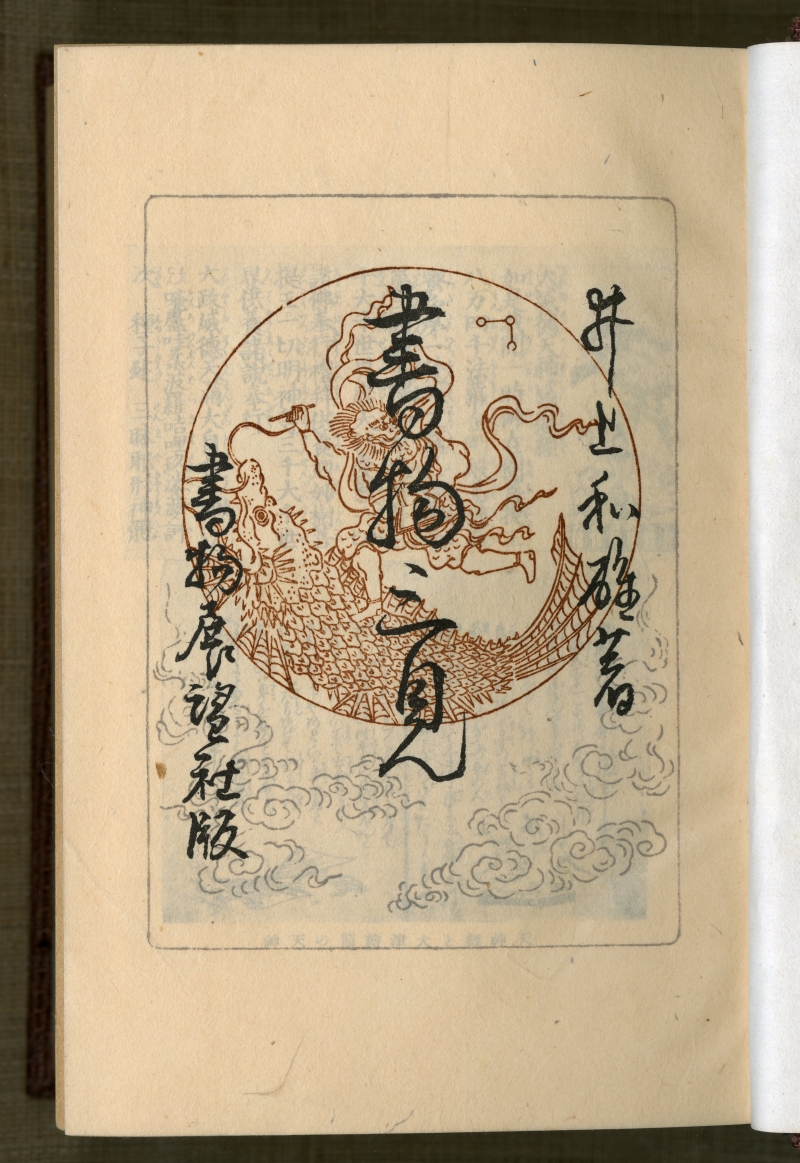 井上和雄著
書物三見
書物展望社版